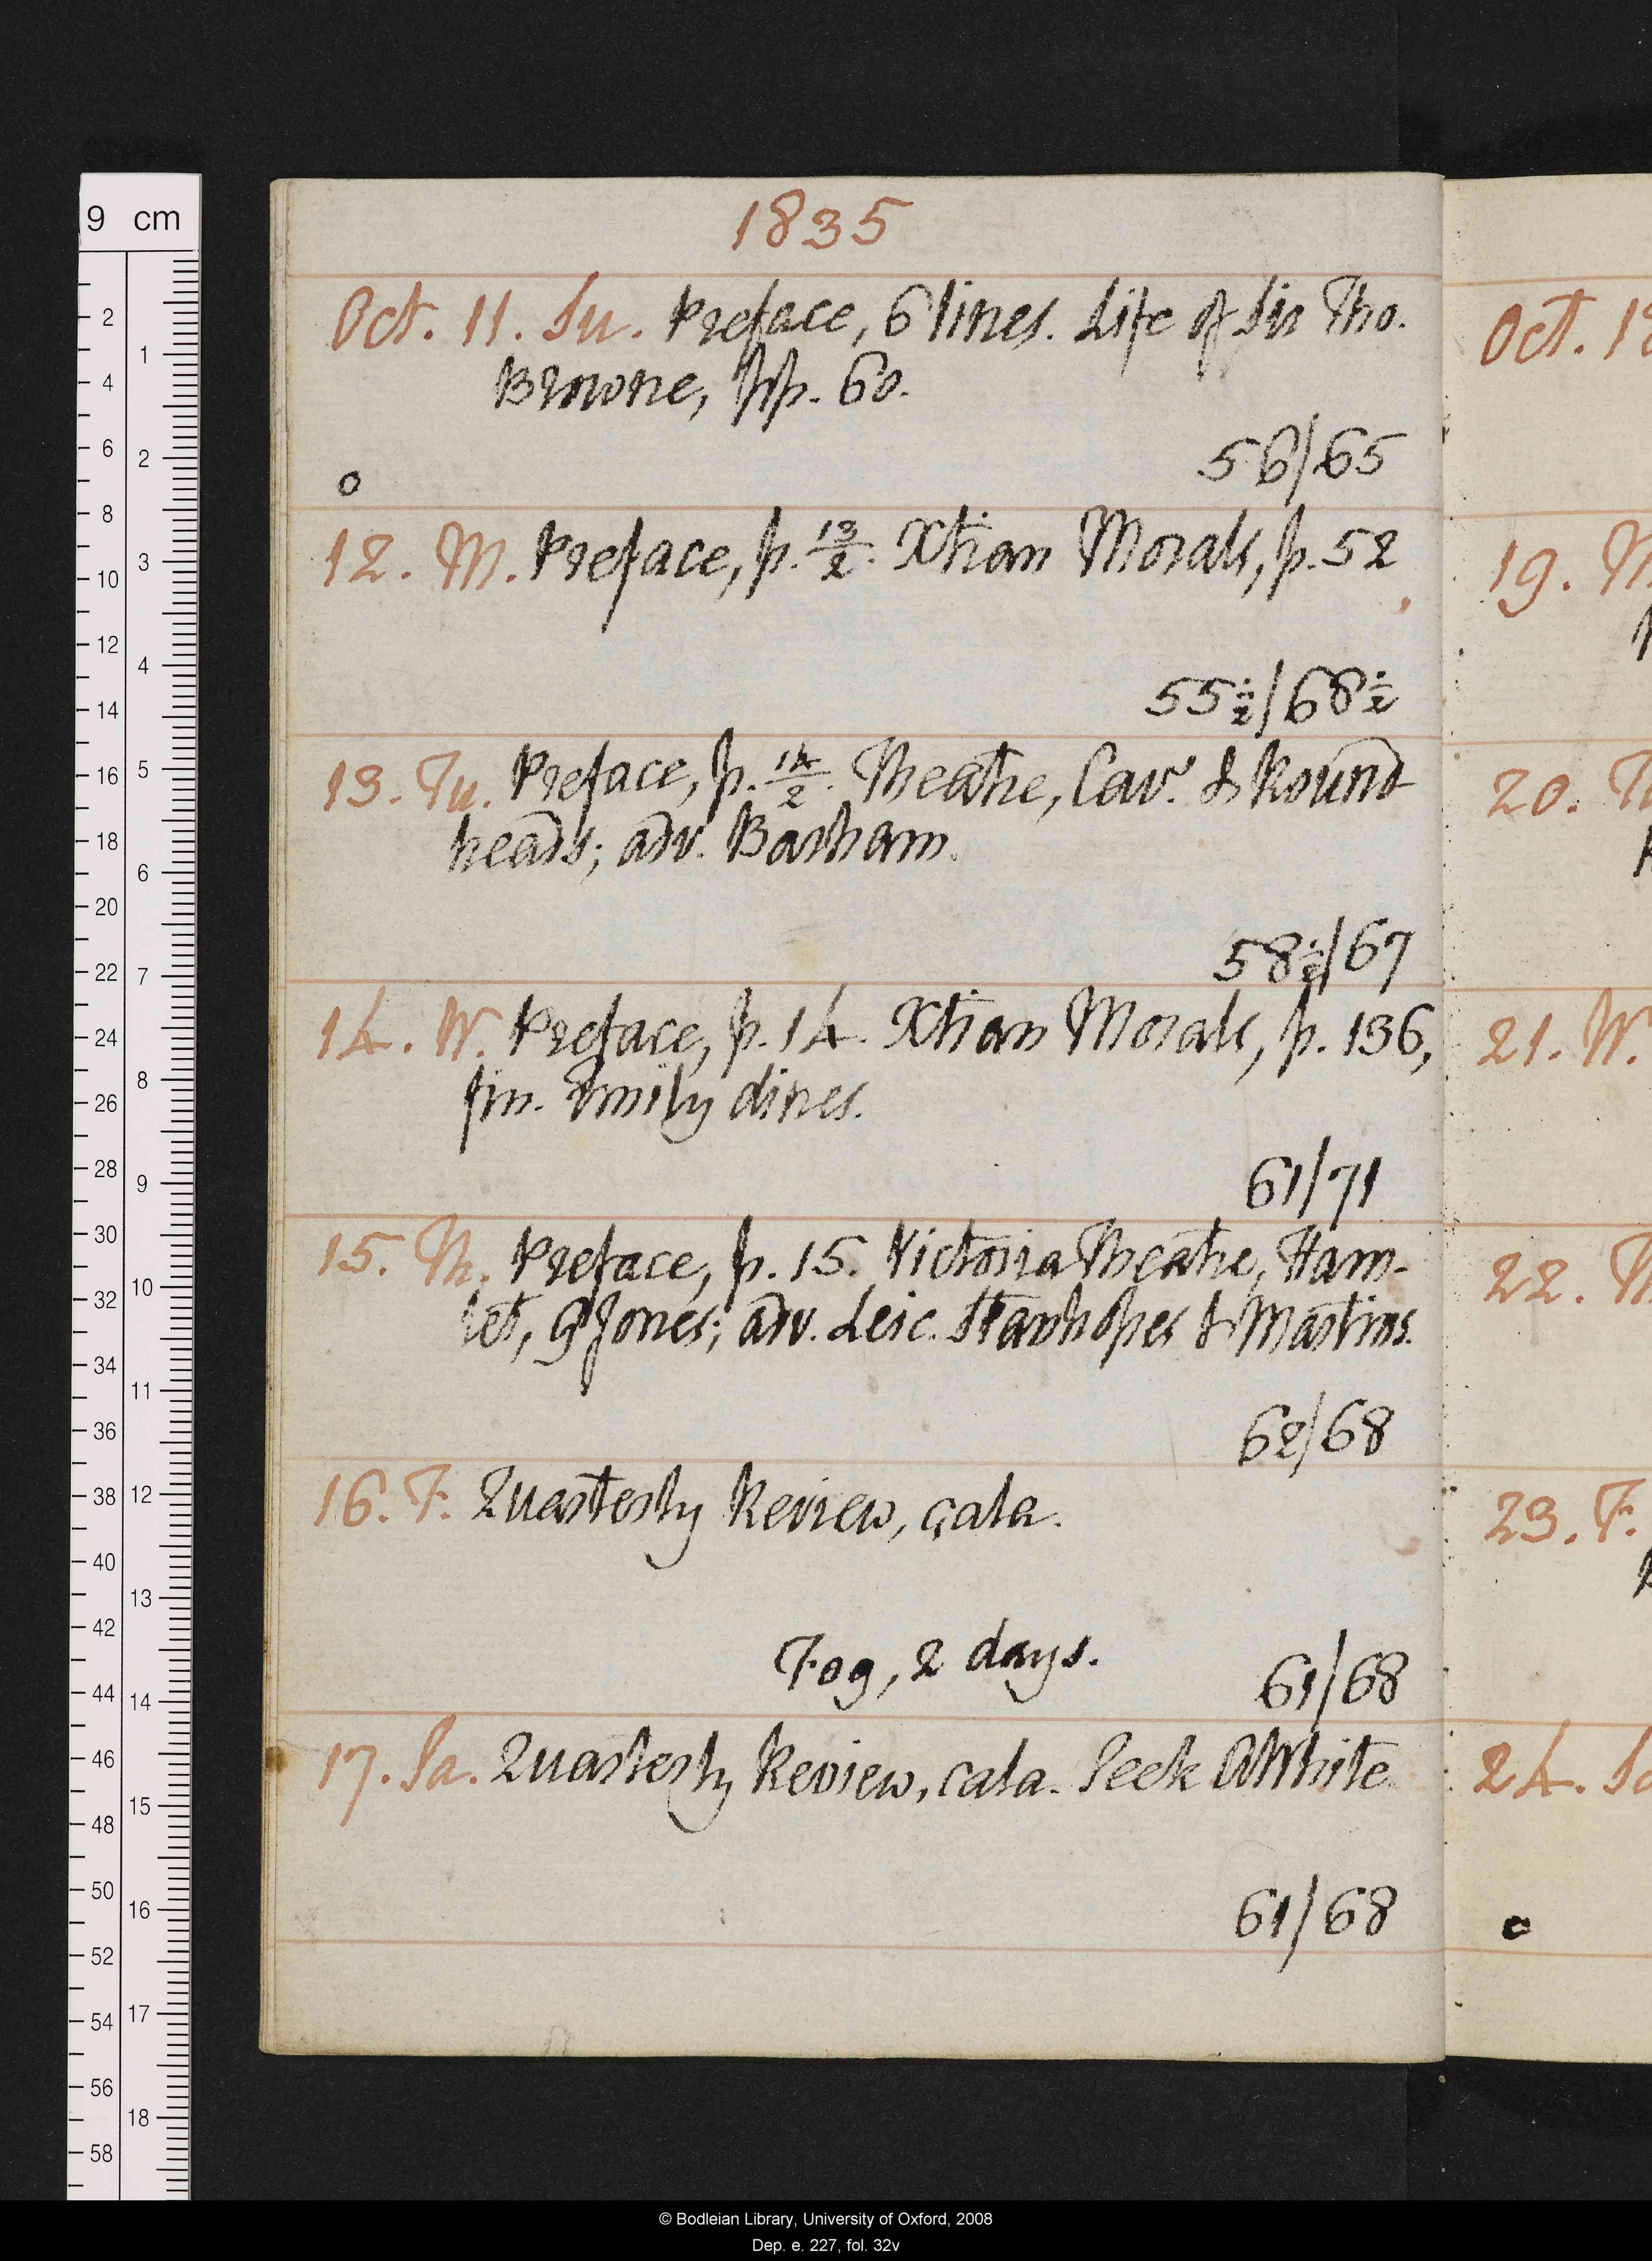 1835
Oct. 11. Su. Preface, 6 lines. Life of Sir Tho.
Browne, pp. 60.
56/65
12. M. Preface, p. 13/2. Xtian Morals, p. 52
55½/68½
13. Tu. Preface, p. 14/2. Theatre, Cav. & Round
heads; adv. Barham.
58½/67
14. W. Preface, p. 14. Xtian Morals, p. 136,
fin. Emily dines.
61/71
15. Th. Preface, p. 15. Victoria Theatre, Ham-
let, G Jones; adv. Leic. Stanhopes & Martins.
62/68
16. F. Quarterly Review, çala.
Fog, 2 days.
61/68
17. Sa. Quarterly Review, cala. Seek A White
61/68
Oct. 18
19. M
20. T
21. W.
22. T
23. F.
24. Sa
9 cm
2
4
6
8
10
12
14
16
18
20
22
24
26
28
30
32
34
36
38
40
42
44
46
48
50
52
54
56
58
1
2
3
4
5
6
7
8
9
10
11
12
13
14
15
16
17
18
© Bodleian Library, University of Oxford, 2008
Dep. e. 227, fol. 32v